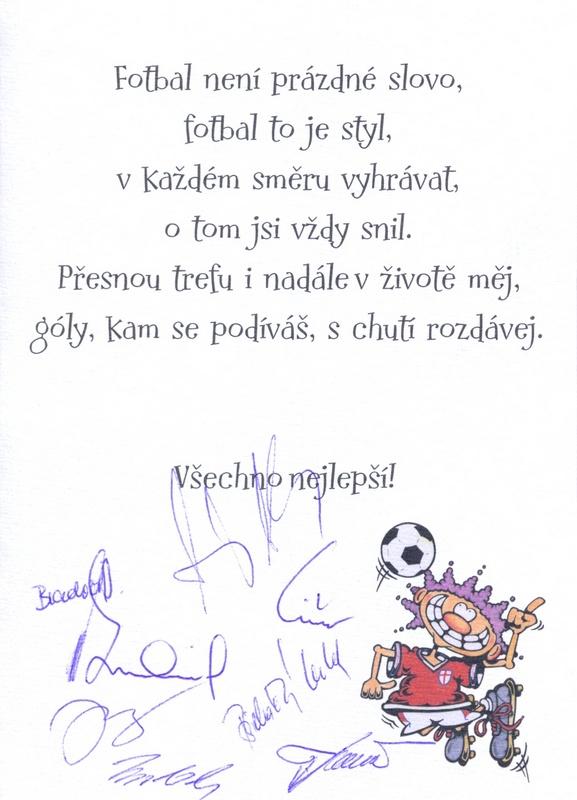 Fotbal není prázdné slovo,
fotbal to je styl,
v každém směru vyhrávat,
o tom jsi vždy snil.
Přesnou trefu i nadále v životě měj,
góly, kam se podíváš, s chutí rozdávej.
Všechno nejlepší!